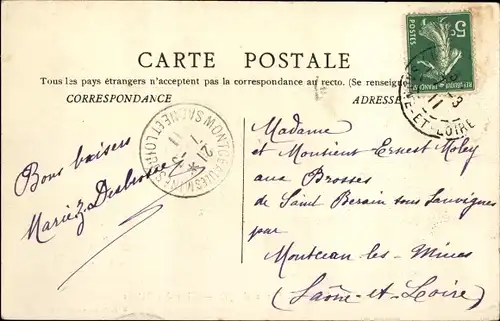 5c
POSTES
REPUBLIQUE FRANÇAISE
CARTE POSTALE
Tous les pays étrangers n'acceptent pas la correspondance au recto. (Se renseigne
CORRESPONDANCE
ADRESSE
21
11
11
ET-LOIRE
SAONE ET LOIRE
Bons baisers
Madame
et Monsieur Ernest
aux Brosses
de Saint Berain sous Sanvignes
par
Montceau les Mines
(Saône-et-Loire)